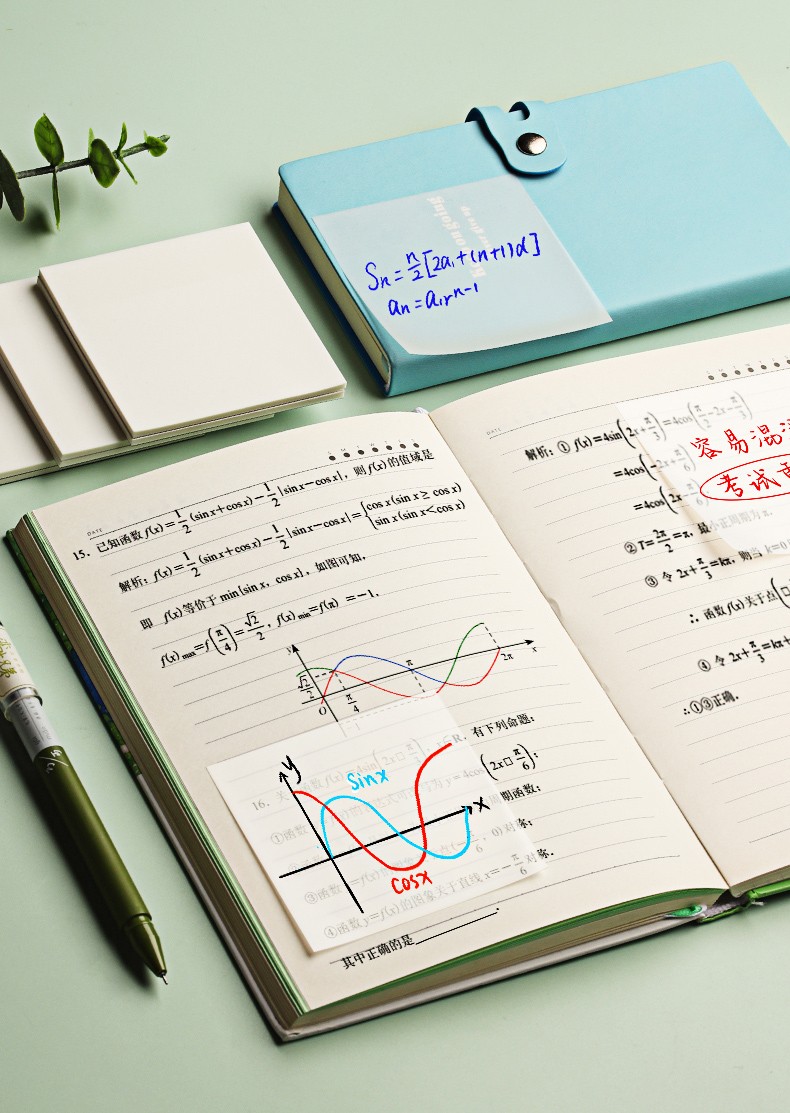 Sn=n/2[2a₁+(n+1)d]
an=a₁rⁿ⁻¹
DATE
15. 已知函数 f(x)=1/2(sinx+cosx)-1/2|sinx-cosx|，则f(x)的值域是
解析：f(x)=1/2(sinx+cosx)-1/2|sinx-cosx|={cosx(sinx≥cosx)
sinx(sinx<cosx)
即 f(x)等价于 min{sinx，cosx}，如图可知，
f(x)max=f(π/4)=√2/2，f(x)min=f(π)=-1.
y
√2/2
O
π/4
π
2π
x
-1
有下列命题：
y=4cos(2x□π/6)；
期函数；
，0)对称；
③
④函数y=f(x)的图象关于直线x=-π/6对称．
其中正确的是
y
sinx
x
cosx
DATE
解析：① f(x)=4sin(2x+π/3)=4cos(π/2-2x-π/3)
=4cos(-2x+π/6)
=4cos(2x-π/6)
②T=2π/2=π，最小正周期为π．
③ 令 2x+π/3=kπ，则当 k=0
∴ 函数f(x)关于点
④ 令 2x+π/3=kπ+
∴①③正确．
容易混
考试